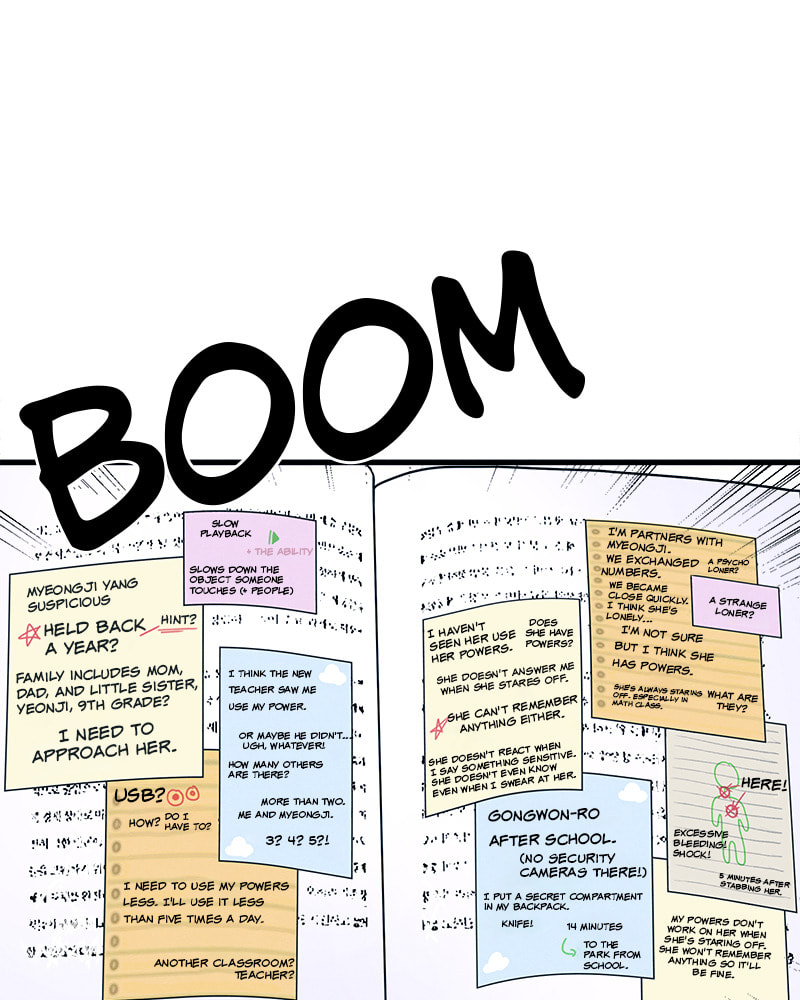 BOOM
SLOW
PLAYBACK
+ THE ABILITY
SLOWS DOWN THE
OBJECT SOMEONE
TOUCHES (+ PEOPLE)
MYEONGJI YANG
SUSPICIOUS
HELD BACK
A YEAR?
HINT?
FAMILY INCLUDES MOM,
DAD, AND LITTLE SISTER,
YEONJI, 9TH GRADE?
I NEED TO
APPROACH HER.
I THINK THE NEW
TEACHER SAW ME
USE MY POWER.
OR MAYBE HE DIDN'T...
UGH, WHATEVER!
HOW MANY OTHERS
ARE THERE?
MORE THAN TWO.
ME AND MYEONGJI.
3? 4? 5?!
USB?
HOW? DO I
HAVE TO?
I NEED TO USE MY POWERS
LESS. I'LL USE IT LESS
THAN FIVE TIMES A DAY.
ANOTHER CLASSROOM?
TEACHER?
I'M PARTNERS WITH
MYEONGJI.
WE EXCHANGED
NUMBERS.
A PSYCHO
LONER?
WE BECAME
CLOSE QUICKLY.
I THINK SHE'S
LONELY...
A STRANGE
LONER?
I'M NOT SURE
BUT I THINK SHE
HAS POWERS.
SHE'S ALWAYS STARING
OFF. ESPECIALLY IN
MATH CLASS.
WHAT ARE
THEY?
I HAVEN'T
SEEN HER USE
HER POWERS.
DOES
SHE HAVE
POWERS?
SHE DOESN'T ANSWER ME
WHEN SHE STARES OFF.
SHE CAN'T REMEMBER
ANYTHING EITHER.
SHE DOESN'T REACT WHEN
I SAY SOMETHING SENSITIVE.
SHE DOESN'T EVEN KNOW
EVEN WHEN I SWEAR AT HER.
HERE!
EXCESSIVE
BLEEDING!
SHOCK!
5 MINUTES AFTER
STABBING HER.
GONGWON-RO
AFTER SCHOOL.
(NO SECURITY
CAMERAS THERE!)
I PUT A SECRET COMPARTMENT
IN MY BACKPACK.
KNIFE!
14 MINUTES
TO THE
PARK FROM
SCHOOL.
MY POWERS DON'T
WORK ON HER WHEN
SHE'S STARING OFF.
SHE WON'T REMEMBER
ANYTHING SO IT'LL
BE FINE.